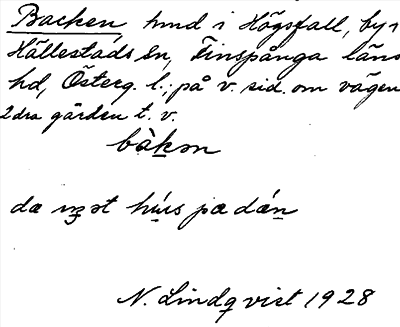 Backen hmd i Högsfall, by i
Hällestads sn, Finspånga läns
hd, Österg. l.; på v. sid. om vägen
2dra gården t. v.
bàkən
dæ
hús pæ dán
N. Lindqvist 1928